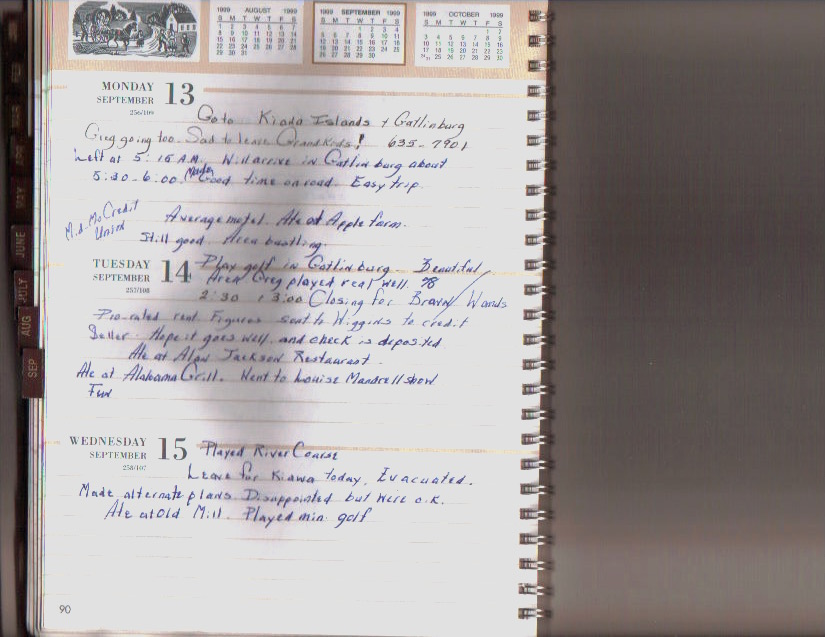 1999 AUGUST 1999
S M T W T F S
1 2 3 4 5 6 7
8 9 10 11 12 13 14
15 16 17 18 19 20 21
22 23 24 25 26 27 28
29 30 31
1999 SEPTEMBER 1999
S M T W T F S
1 2 3 4
5 6 7 8 9 10 11
12 13 14 15 16 17 18
19 20 21 22 23 24 25
26 27 28 29 30
1999 OCTOBER 1999
S M T W T F S
1 2
3 4 5 6 7 8 9
10 11 12 13 14 15 16
17 18 19 20 21 22 23
24/31 25 26 27 28 29 30
MONDAY 13
SEPTEMBER
256/109
Go to Kiada Islands + Gatlinburg
Greg going too. Sad to leave GrandKids! 635-7901
Left at 5:15 A.M. Will arrive in Gatlinburg about
5:30-6:00. Made Good time on road. Easy trip.
Mid-Mo Credit
Union
Average motel. Ate at Apple farm.
Still good. Area bustling.
TUESDAY 14
SEPTEMBER
257/108
Play golf in Gatlinburg Beautiful
Area Greg played real well. 78
2:30 13:00 Closing for Brown / Woods
Pro-rated rent. Figures sent to Wiggins to credit
Seller. Hope it goes well, and check is deposited
Ate at Alan Jackson Restaurant.
Ate at Alabama Grill. Went to Louise Mandrell show
Fun
WEDNESDAY 15
SEPTEMBER
258/107
Played River Course
Leave for Kiawa today. Evacuated.
Made alternate plans Disappointed but were o.k.
Ate at Old Mill. Played min. golf
90
MAY
JUNE
JULY
AUG
SEP